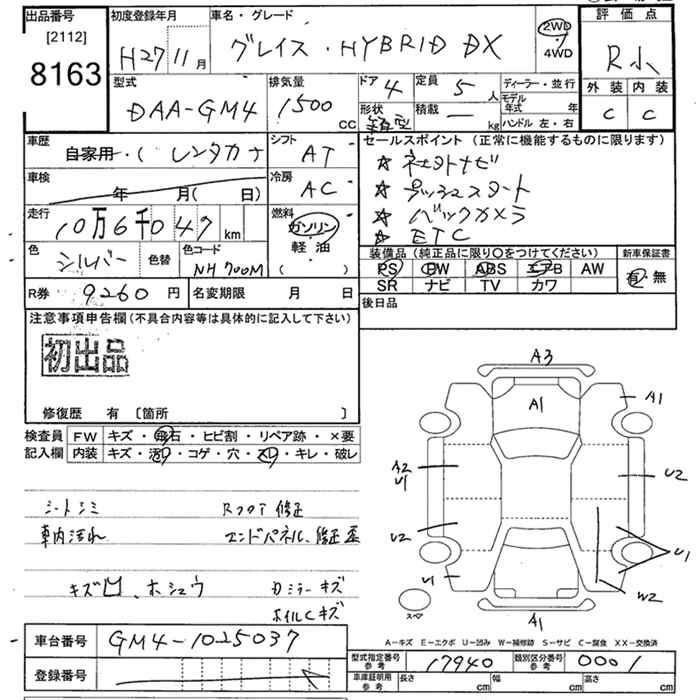 出品番号
[2112]
8163
初度登録年月
H27 11月
車名・グレード
グレイス・HYBRID DX
2WD
4WD
評価点
R小
外装 内装
C C
型式
DAA-GM4
排気量
1500
CC
ドア 4
定員 5人
形状 箱型
積載 — kg
ディーラー・並行
モデル年式 年
ハンドル 左・右
車歴
自家用・( レンタカー
シフト
AT
車検
年 月( 日)
冷房
AC
走行
10万6千047 km
燃料
ガソリン
軽・油
( )
色
シルバー
色替
色コード
NH700M
セールスポイント (正常に機能するものに限ります)
☆ 社外ナビ
☆ プッシュスタート
☆ バックカメラ
☆ ETC
装備品 (純正品に限り○をつけてください)
PS PW ABS エアB AW
SR ナビ TV カワ
新車保証書
有・無
R券 9260 円
名変期限 月 日
後日品
注意事項申告欄 (不具合内容等は具体的に記入して下さい)
初出品
修復歴 有 〔箇所 〕
検査員
記入欄
FW キズ・飛石・ヒビ割・リペア跡・×要
内装 キズ・汚れ・コゲ・穴・スレ・キレ・破レ
シートシミ
Rフロア 修正
車内汚れ
エンドパネル、修正歪
キズ凹、ホシュウ
カミラーキズ
ホイルCキズ
A3
A1
A1
A2
U1
U2
U2
U1
U1
W2
A1
スペア
A-キズ E-エクボ U-凹み W-補修跡 S-サビ C-腐食 XX-交換済
車台番号
GM4-1025037
登録番号
型式指定番号 参考 17940
類別区分番号 参考 0001
車庫証明用 参考 長さ cm 幅 cm 高さ cm